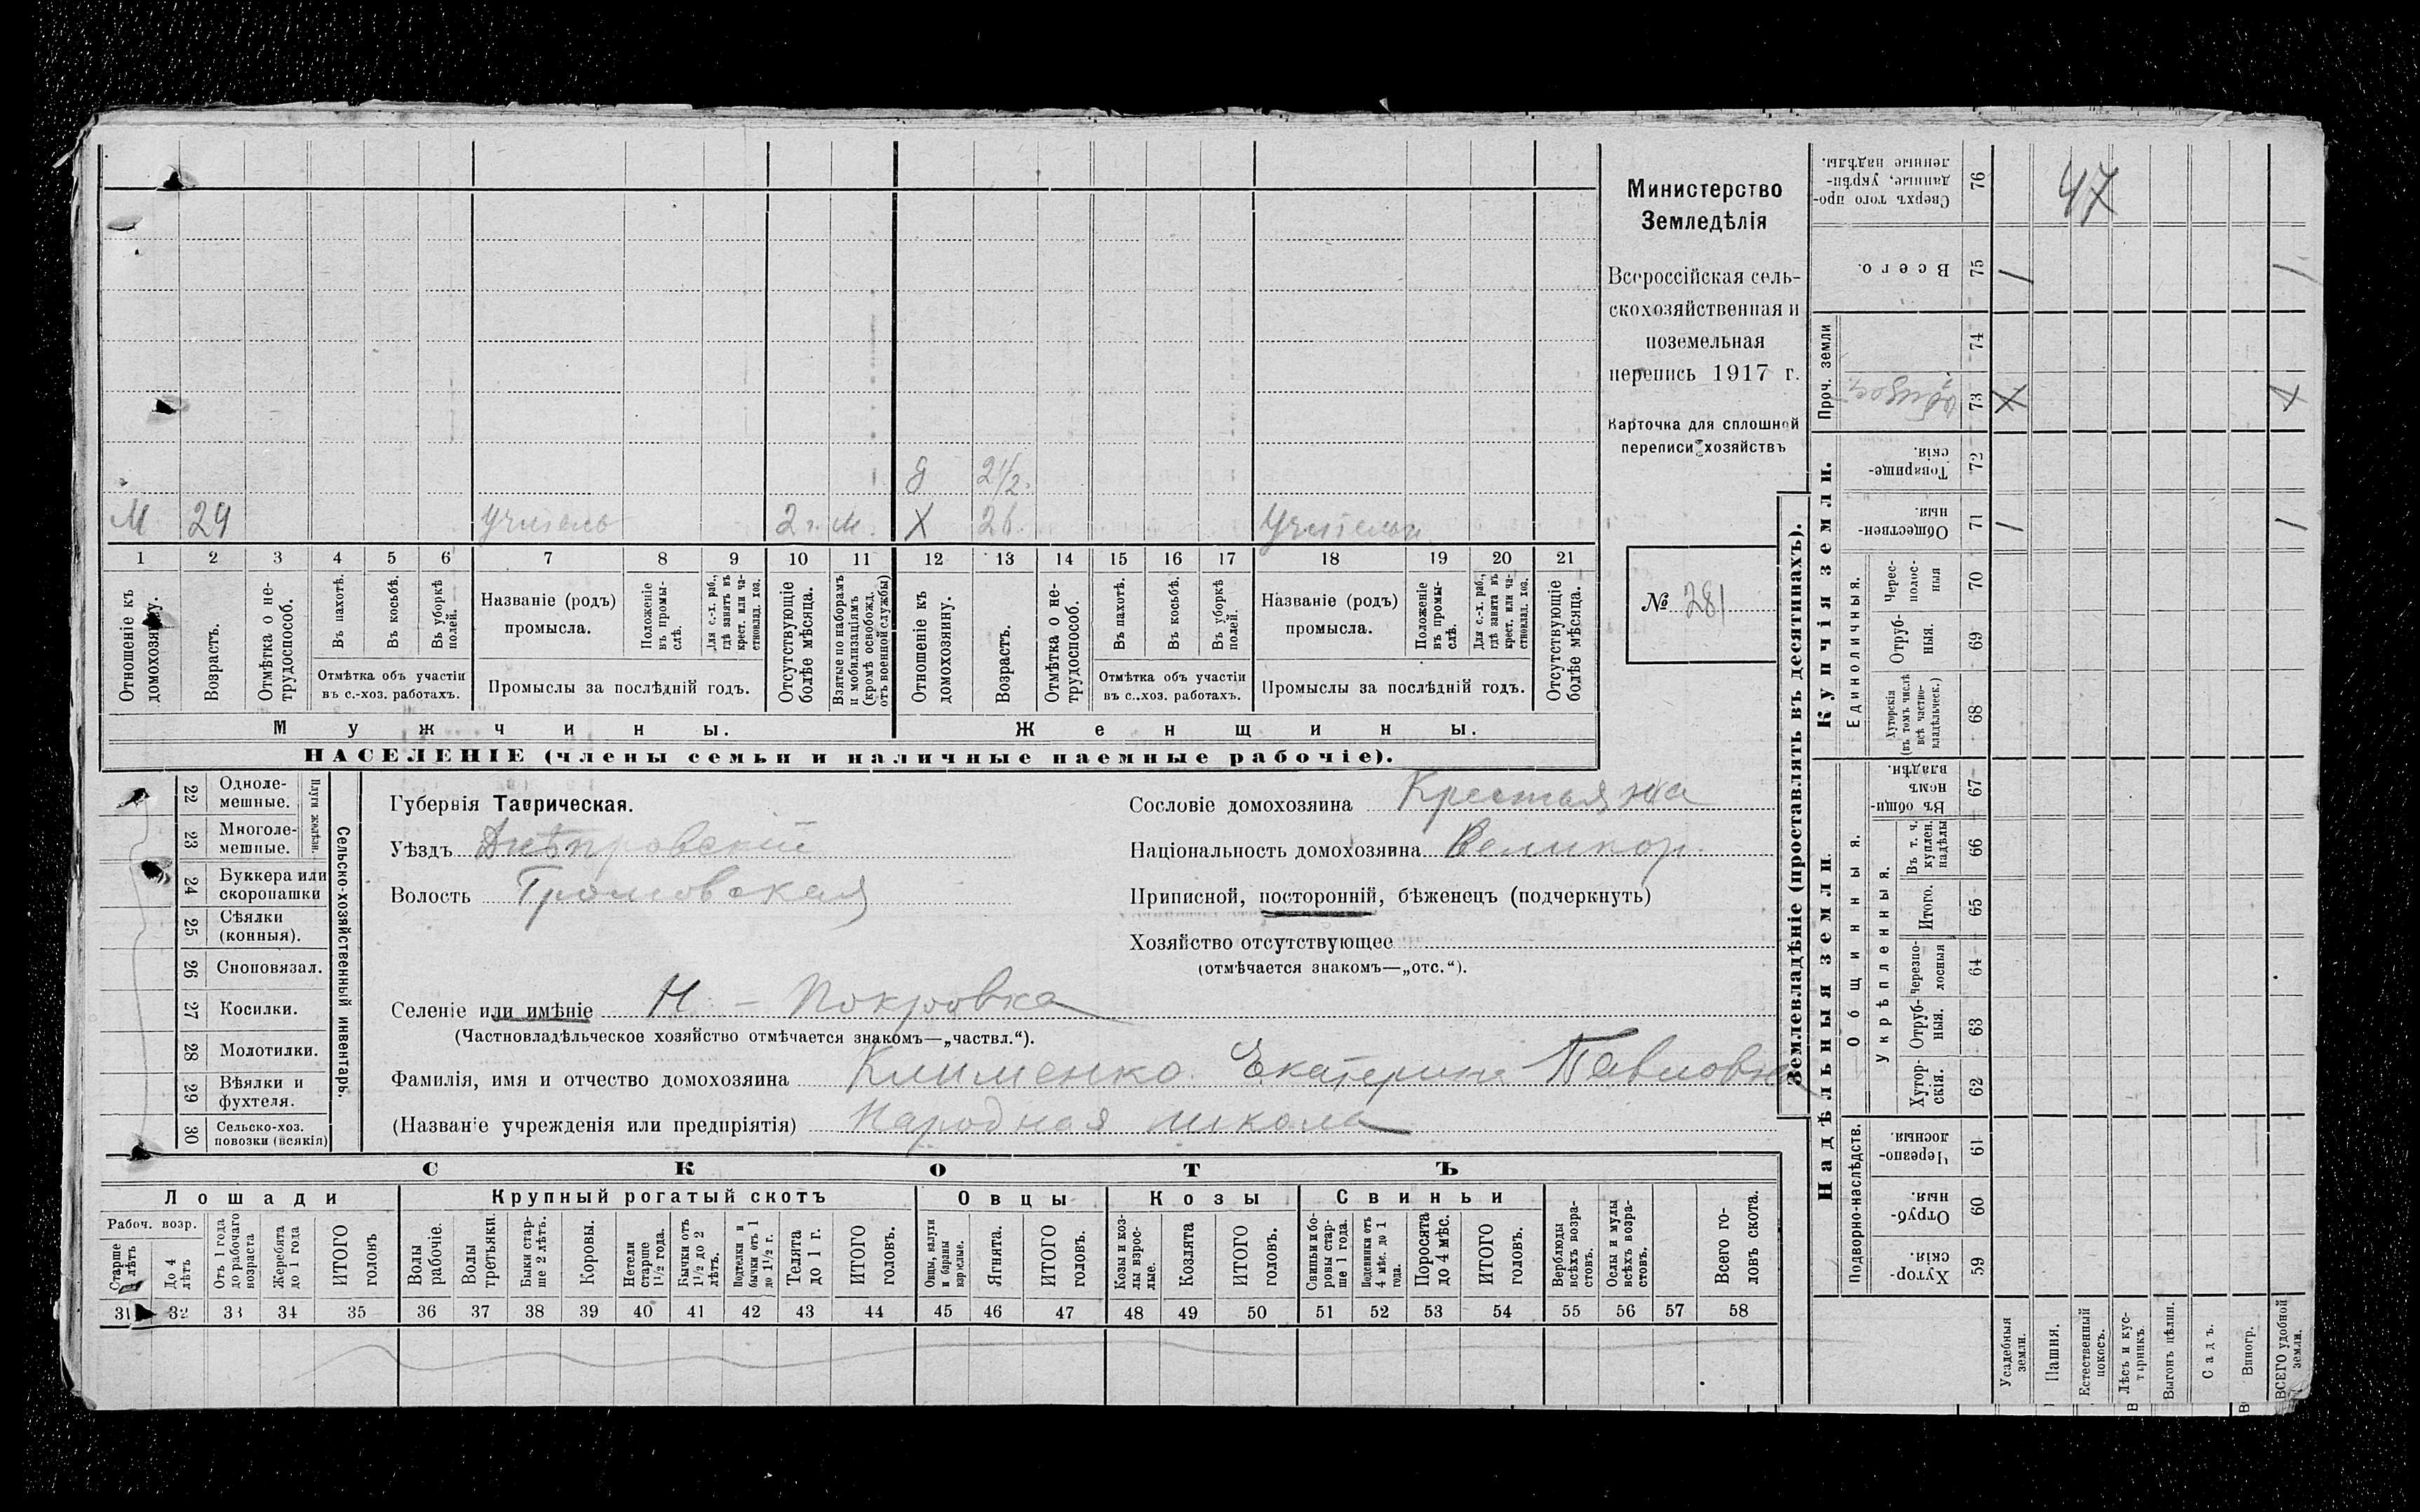 д 2 1/2.
М 29 учитель 2 г. м. Х 26. Учительн.
1 2 3 4 5 6 7 8 9 10 11 12 13 14 15 16 17 18 19 20 21
Отношеніе къ домохозяину.
Возрастъ.
Отмѣтка о не-
трудоспособ.
Въ пахотѣ.
Въ косьбѣ.
Въ уборкѣ
полей.
Отмѣтка объ участіи
въ с.-хоз. работахъ.
Названіе (родъ)
промысла.
Положеніе
въ промы-
слѣ.
Для с.-х. раб.,
гдѣ занятъ въ
крест. или ча-
стновлад. хоз.
Промыслы за послѣдній годъ.
Отсутствующіе
болѣе мѣсяца.
Взятые по наборамъ
и мобилизаціямъ
(кромѣ освобожд.
отъ военной службы)
Отношеніе къ
домохозяину.
Возрастъ.
Отмѣтка о не-
трудоспособ.
Въ пахотѣ.
Въ косьбѣ.
Въ уборкѣ
полей.
Отмѣтка объ участіи
въ с..хоз. работахъ.
Названіе (родъ)
промысла.
Положеніе
въ промы-
слѣ.
Для с.-х. раб.,
гдѣ занята въ
крест. или ча-
стновлад. хоз.
Промыслы за послѣдній годъ.
Отсутствующіе
болѣе мѣсяца.
Мужчины.
Женщины.
НАСЕЛЕНІЕ (члены семьи и наличные наемные рабочіе).
Министерство
Земледѣлія
Всероссійская сель-
скохозяйственная и
поземельная
перепись 1917 г.
Карточка для сплошной
переписи хозяйствъ
№ 281
22 Одноле-
мешные.
23 Многоле-
мешные.
Плуги желѣзн.
24 Буккера или
скоропашки
25 Сѣялки
(конныя).
26 Сноповязал.
27 Косилки.
28 Молотилки.
29 Вѣялки и
фухтеля.
30 Сельско-хоз.
повозки (всякія)
Сельско-хозяйственный инвентарь.
Губернія Таврическая.
Уѣздъ Днѣпровскій
Волость Громовская
Селеніе или имѣніе Н - Покровка
(Частновладѣльческое хозяйство отмѣчается знакомъ—„частвл.“).
Фамилія, имя и отчество домохозяина Клименко Екатерина Павловна
(Названіе учрежденія или предпріятія) Народная школа
Сословіе домохозяина Крестьянка
Національность домохозяина Великор.
Приписной, посторонній, бѣженецъ (подчеркнуть)
Хозяйство отсутствующее
(отмѣчается знакомъ—„отс.“).
СКОТЪ
Лошади
Рабоч. возр.
Старше 4 лѣтъ
До 4
лѣтъ
Отъ 1 года
до рабочаго
возраста
Жеребята
до 1 года
ИТОГО
головъ
Крупный рогатый скотъ
Волы
рабочіе.
Волы
третьяки.
Быки стар-
ше 2 лѣтъ.
Коровы.
Нетели
старше
1 1/2 года.
Бычки отъ
1 1/2 до 2
лѣтъ.
Подтелки и
бычки отъ 1
до 1 1/2 г.
Телята
до 1 г.
ИТОГО
головъ.
Овцы
Овцы, валухи
и бараны
взрослые.
Ягнята.
ИТОГО
головъ.
Козы
Козы и коз-
лы взрос-
лые.
Козлята
ИТОГО
головъ.
Свиньи
Свиньи и бо-
ровы стар-
ше 1 года.
Подсвинки отъ
4 мѣс. до 1
года.
Поросята
до 4 мѣс.
ИТОГО
головъ.
Верблюды
всѣхъ возра-
стовъ.
Ослы и мулы
всѣхъ возра-
стовъ.
Всего го-
ловъ скота.
31 32 33 34 35 36 37 38 39 40 41 42 43 44 45 46 47 48 49 50 51 52 53 54 55 56 57 58
Землевладѣніе (проставлять въ десятинахъ).
Надѣльныя земли.
Подворно-наслѣдств.
Хутор-
скія. 59
Отруб-
ныя. 60
Черезпо-
лосныя 61
Общинныя.
Укрѣпленныя.
Хутор-
скія. 62
Отруб-
ныя. 63
Черезпо-
лосныя 64
Итого. 65
Въ т. ч.
куплен.
надѣлы 66
Въ общи-
номъ
владѣн. 67
Купчія земли.
Единоличныя.
Хуторскія
(въ томъ числѣ
всѣ частно-
владѣльческ.) 68
Отруб-
ныя. 69
Черес-
полос-
ныя 70
Обществен-
ныя. 71
Товарище-
скія. 72
Проч. земли
73
74
Всего. 75
Сверхъ того про-
данные, укрѣп-
ленные надѣлы. 76
47
Усадебныя
земли.
Пашня.
Естественный
покосъ.
Лѣсъ и кус-
тарникъ.
Выгонъ цѣлин.
Садъ.
Виногр.
ВСЕГО удобной
земли.